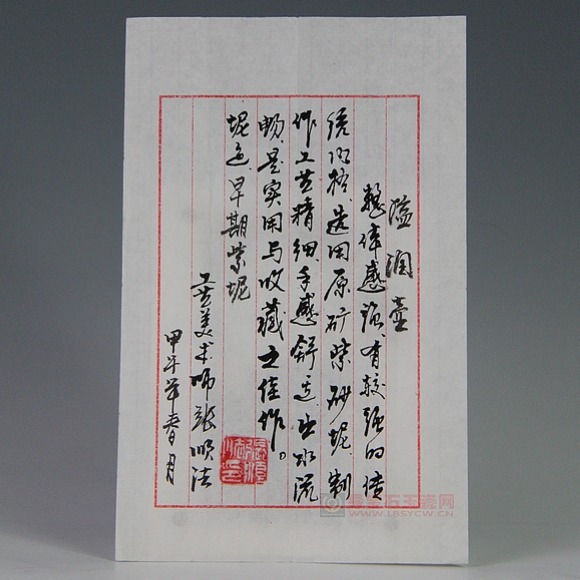 溢润壶
整体感强、有较强的传
统风格、选用原矿紫砂坭、制
作工艺精细、手感舒适、出水流
畅、是实用与收藏之佳作。
坭色、早期紫坭
工艺美术师张顺法
甲午年春月
石玉瓷网
WWW.LBSYCW.CN